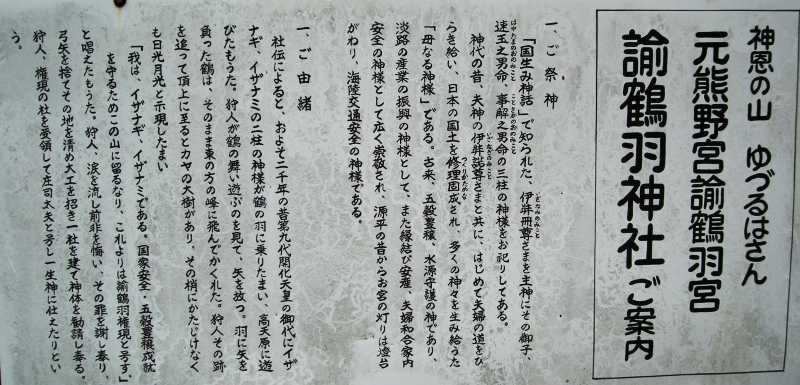 神恩の山　ゆづるはさん
元熊野宮諭鶴羽宮
諭鶴羽神社ご案内
一、ご祭神
「国生み神話」で知られた、伊弉冊尊さまを主神にその御子、
速玉之男命、事解之男命の三柱の神様をお祀りしてある。
神代の昔、夫神の伊弉諾尊さまと共に、はじめて夫婦の道をひ
らき給い、日本の国土を修理固成され、多くの神々を生み給うた
「母なる神様」である。古来、五穀豊穣、水源守護の神であり、
淡路の産業の振興の神様として、また縁結び安産、夫婦和合家内
安全の神様として広く崇敬され、源平の昔からお宮の灯りは燈台
がわり、海陸交通安全の神様である。
一、ご由緒
社伝によると、およそ二千年の昔第九代開化天皇の御代にイザ
ナギ、イザナミの二柱の神様が鶴の羽に乗りたまい、高天原に遊
びたもうた。狩人が鶴の舞い遊ぶのを見て、矢を放つ。羽に矢を
負った鶴は、そのまま東の方の峰に飛んでかくれた。狩人その跡
を追って頂上に至るとカヤの大樹があり、その梢にかたじけなく
も日光月光と示現したまい
「我は、イザナギ、イザナミである。国家安全・五穀豊穣成就
を守るためこの山に留るなり、これよりは諭鶴羽権現と号す」
と唱えたもうた。狩人、涙を流し前非を悔い、その罪を謝し奉り、
弓矢を捨てその地を清め大工を招き一社を建て神体を勧請し奉る。
狩人、権現の社を受領して庄司太夫と号し一生神に仕えたりとい
う。